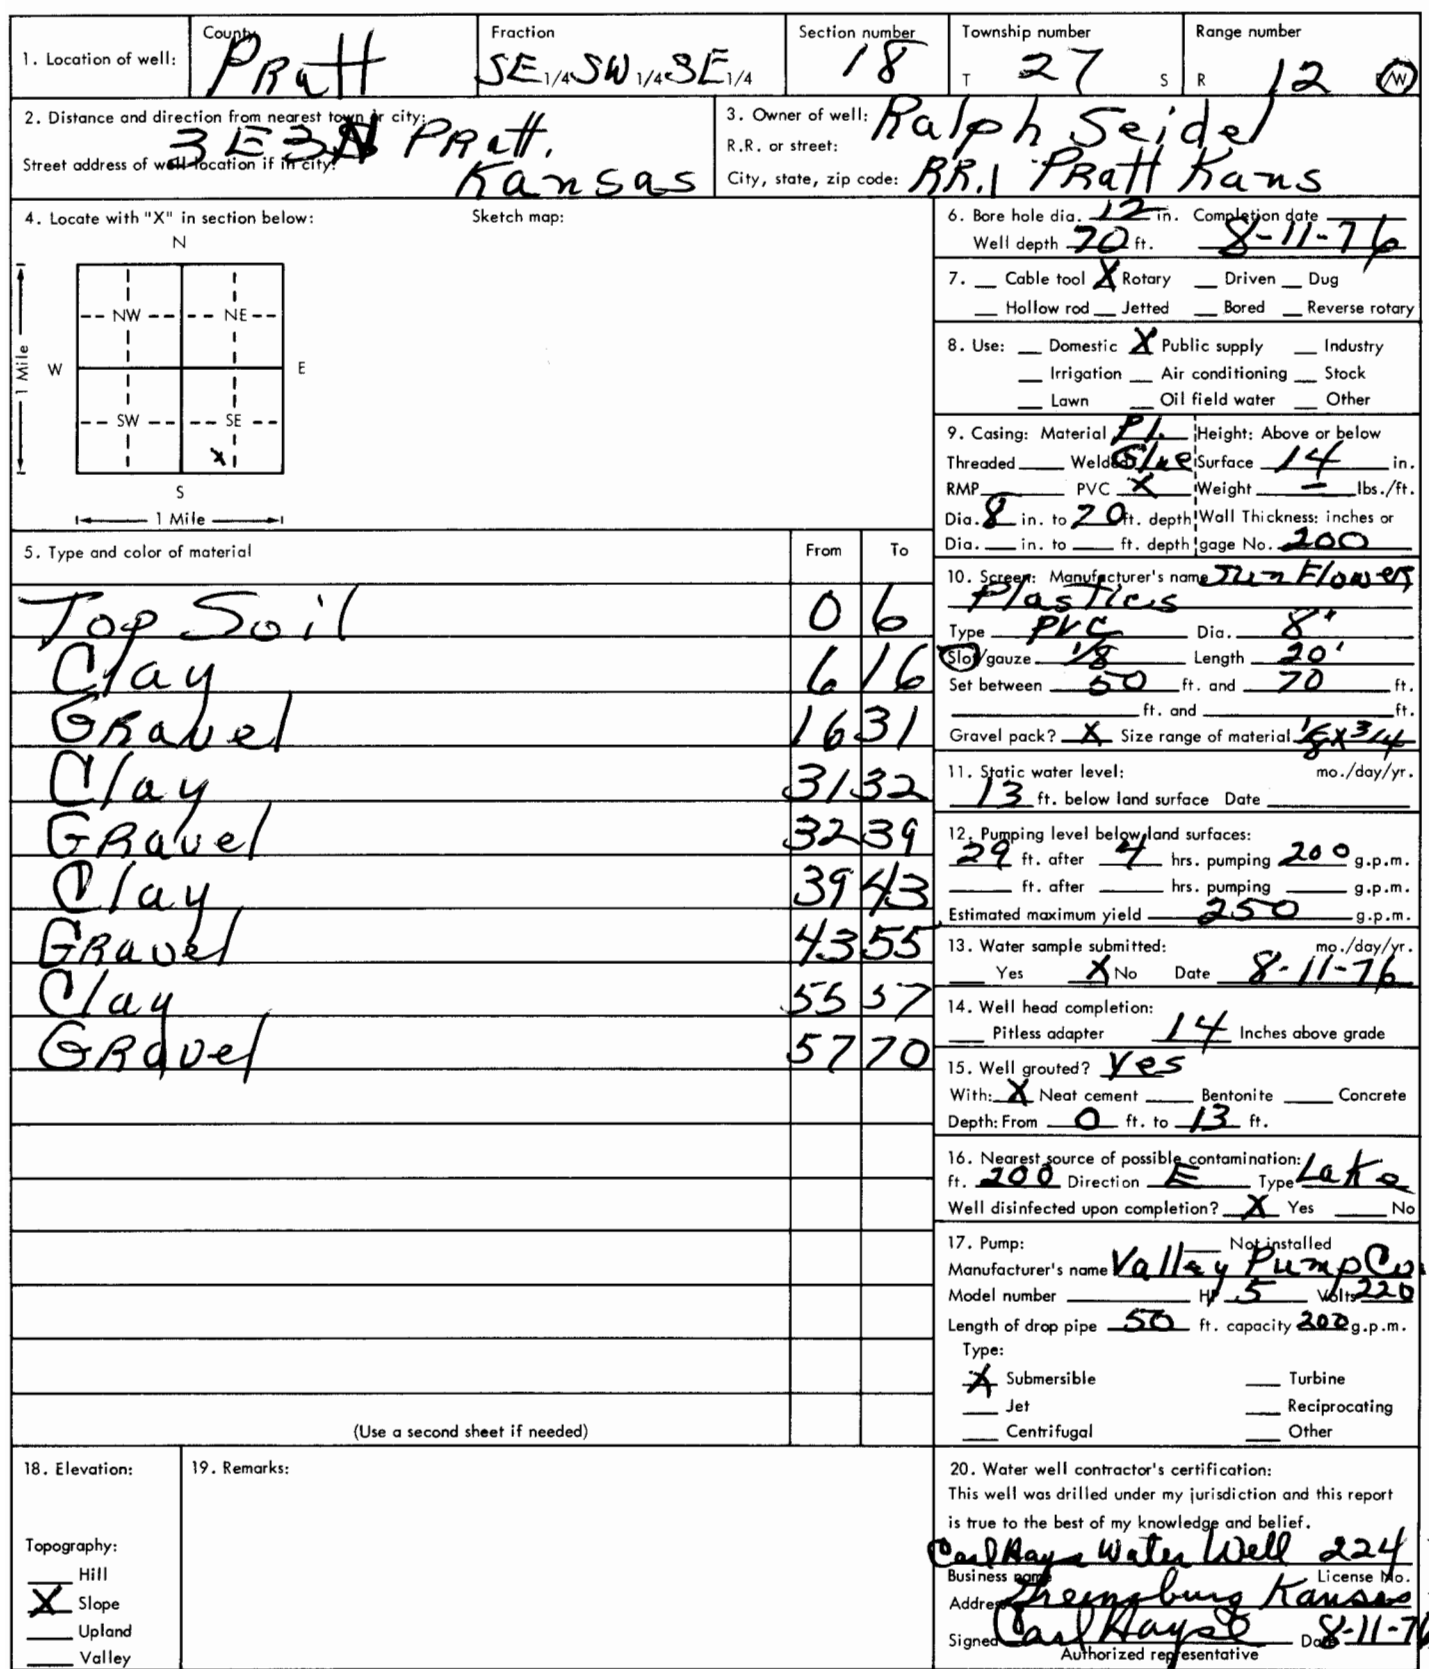 1. Location of well: County Pratt Fraction SE 1/4 SW 1/4 SE 1/4 Section number 18 Township number T 27 S Range number R 12 E/W
2. Distance and direction from nearest town or city: 3 E 3 N Pratt,
Street address of well location if in city: Kansas
3. Owner of well: Ralph Seidel
R.R. or street:
City, state, zip code: RR.1 Pratt Kans
4. Locate with "X" in section below: Sketch map:
N
NW NE
W E
1 Mile
SW SE
X
S
1 Mile
5. Type and color of material From To
Top Soil 0 6
Clay 6 16
Gravel 16 31
Clay 31 32
Gravel 32 39
Clay 39 43
Gravel 43 55
Clay 55 57
Gravel 57 70
(Use a second sheet if needed)
6. Bore hole dia. 12 in. Completion date
Well depth 70 ft. 8-11-76
7. __ Cable tool X Rotary __ Driven __ Dug
__ Hollow rod __ Jetted __ Bored __ Reverse rotary
8. Use: __ Domestic X Public supply __ Industry
__ Irrigation __ Air conditioning __ Stock
__ Lawn __ Oil field water __ Other
9. Casing: Material Pl. Height: Above or below
Threaded ____ Welded Glue Surface 14 in.
RMP ____ PVC X Weight — lbs./ft.
Dia. 8 in. to 70 ft. depth Wall Thickness: inches or
Dia. __ in. to __ ft. depth gage No. 200
10. Screen: Manufacturer's name Sun Flower
Plastics
Type PVC Dia. 8"
Slot/gauze 1/8 Length 20'
Set between 50 ft. and 70 ft.
____ ft. and ____ ft.
Gravel pack? X Size range of material 1/8 x 3/4
11. Static water level: mo./day/yr.
13 ft. below land surface Date ____
12. Pumping level below land surfaces:
29 ft. after 4 hrs. pumping 200 g.p.m.
____ ft. after ____ hrs. pumping ____ g.p.m.
Estimated maximum yield 250 g.p.m.
13. Water sample submitted: mo./day/yr.
__ Yes X No Date 8-11-76
14. Well head completion:
__ Pitless adapter 14 Inches above grade
15. Well grouted? Yes
With: X Neat cement ____ Bentonite ____ Concrete
Depth: From 0 ft. to 13 ft.
16. Nearest source of possible contamination:
ft. 200 Direction E Type Lake
Well disinfected upon completion? X Yes ____ No
17. Pump: __ Not installed
Manufacturer's name Valley Pump Co.
Model number ____ HP 5 Volts 220
Length of drop pipe 50 ft. capacity 200 g.p.m.
Type:
X Submersible __ Turbine
__ Jet __ Reciprocating
__ Centrifugal __ Other
18. Elevation:
Topography:
__ Hill
X Slope
__ Upland
__ Valley
19. Remarks:
20. Water well contractor's certification:
This well was drilled under my jurisdiction and this report
is true to the best of my knowledge and belief.
Carl Hayse Water Well 224
Business name License No.
Address Greensburg Kansas
Signed Carl Hayse Date 8-11-76
Authorized representative